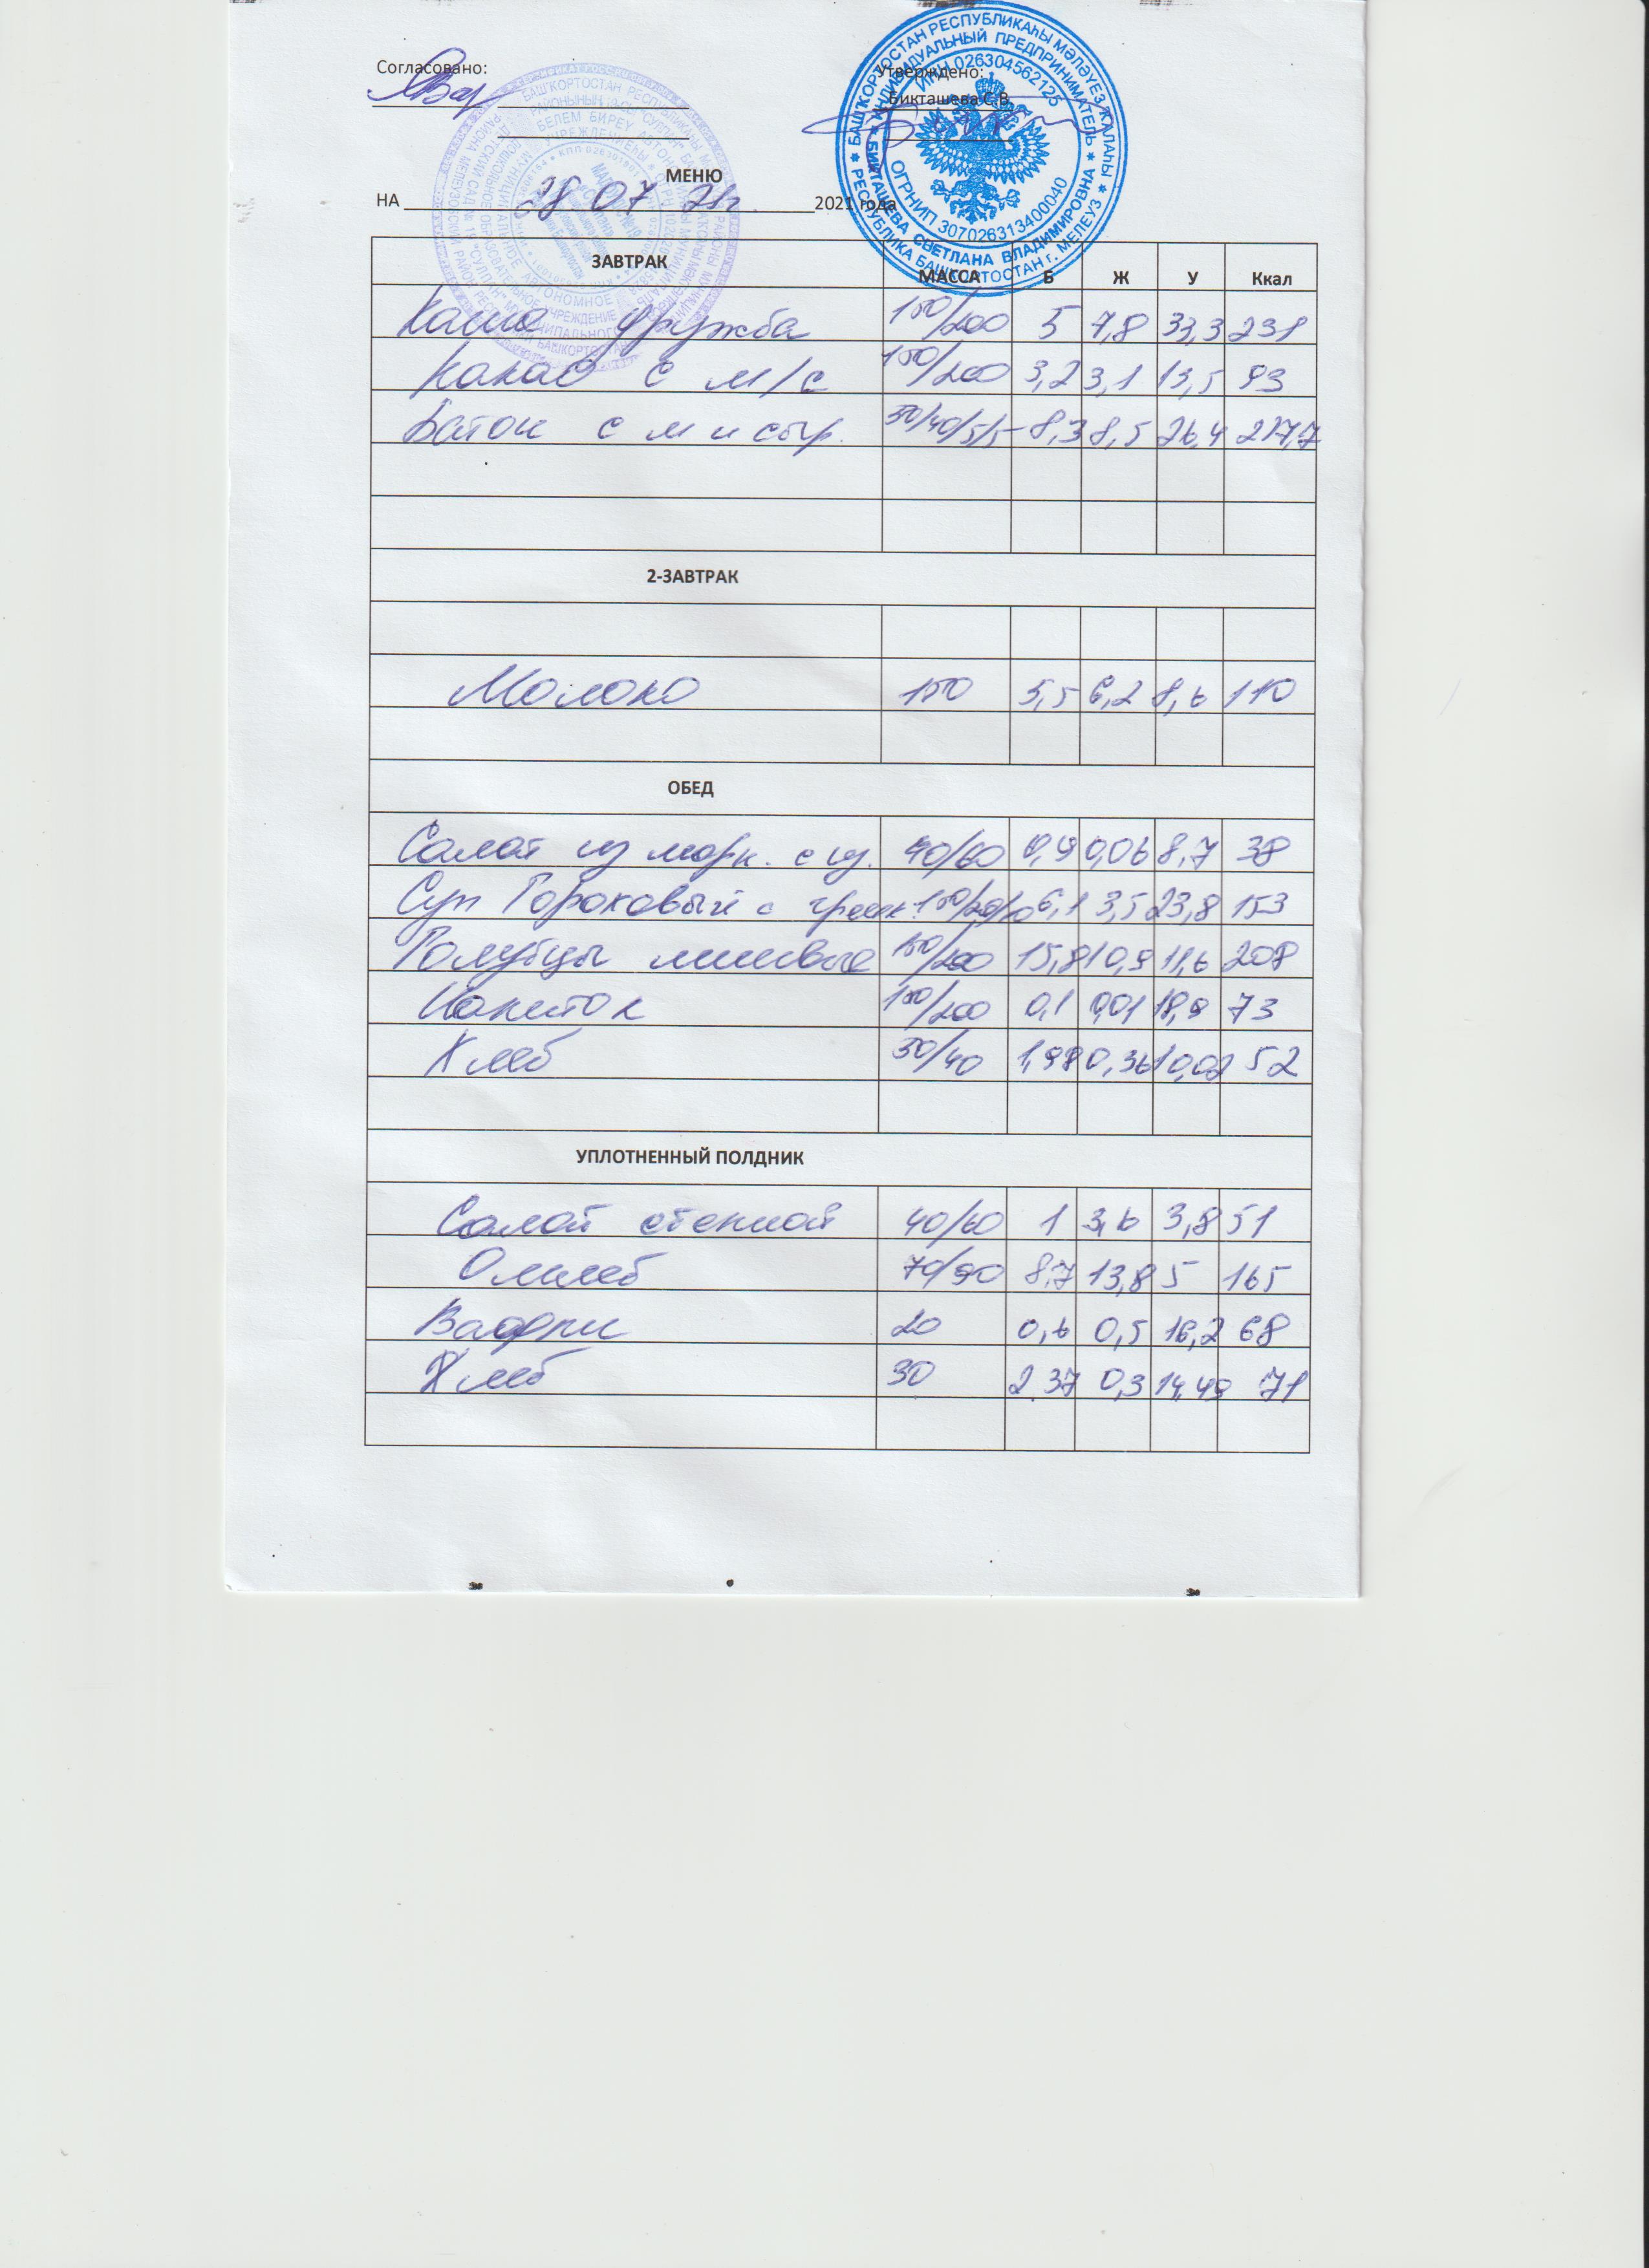 Согласовано:
Утверждено:
Бикташева С.В.
БАШҠОРТОСТАН РЕСПУБЛИКАҺЫ МӘЛӘҮЕЗ ҠАЛАҺЫ
РЕСПУБЛИКА БАШКОРТОСТАН г. МЕЛЕУЗ
ИНДИВИДУАЛЬНЫЙ ПРЕДПРИНИМАТЕЛЬ
БИКТАШЕВА СВЕТЛАНА ВЛАДИМИРОВНА
ИНН 026304562125
ОГРНИП 307026313400040
МЕНЮ
НА 28 07 21г. 2021 года
ЗАВТРАК МАССА Б Ж У Ккал
Каша дружба 150/200 5 7,8 33,3 231
Какао с м/с 150/200 3,2 3,1 13,5 93
Батон с м и сыр. 30/40/5/5 8,3 8,5 26,4 217,7
2-ЗАВТРАК
Молоко 150 5,5 6,2 8,6 110
ОБЕД
Салат из морк. с из. 40/60 0,9 0,06 8,7 38
Суп Гороховый с гренк. 150/200/10 6,1 3,5 23,8 153
Голубцы ленивые 150/200 15,8 10,9 11,6 208
Напиток 150/200 0,1 0,01 18,9 73
Хлеб 30/40 1,98 0,36 10,02 52
УПЛОТНЕННЫЙ ПОЛДНИК
Салат степной 40/60 1 3,6 3,8 51
Омлет 70/90 8,7 13,8 5 165
Вафли 20 0,6 0,5 16,2 68
Хлеб 30 2.37 0,3 14,49 71